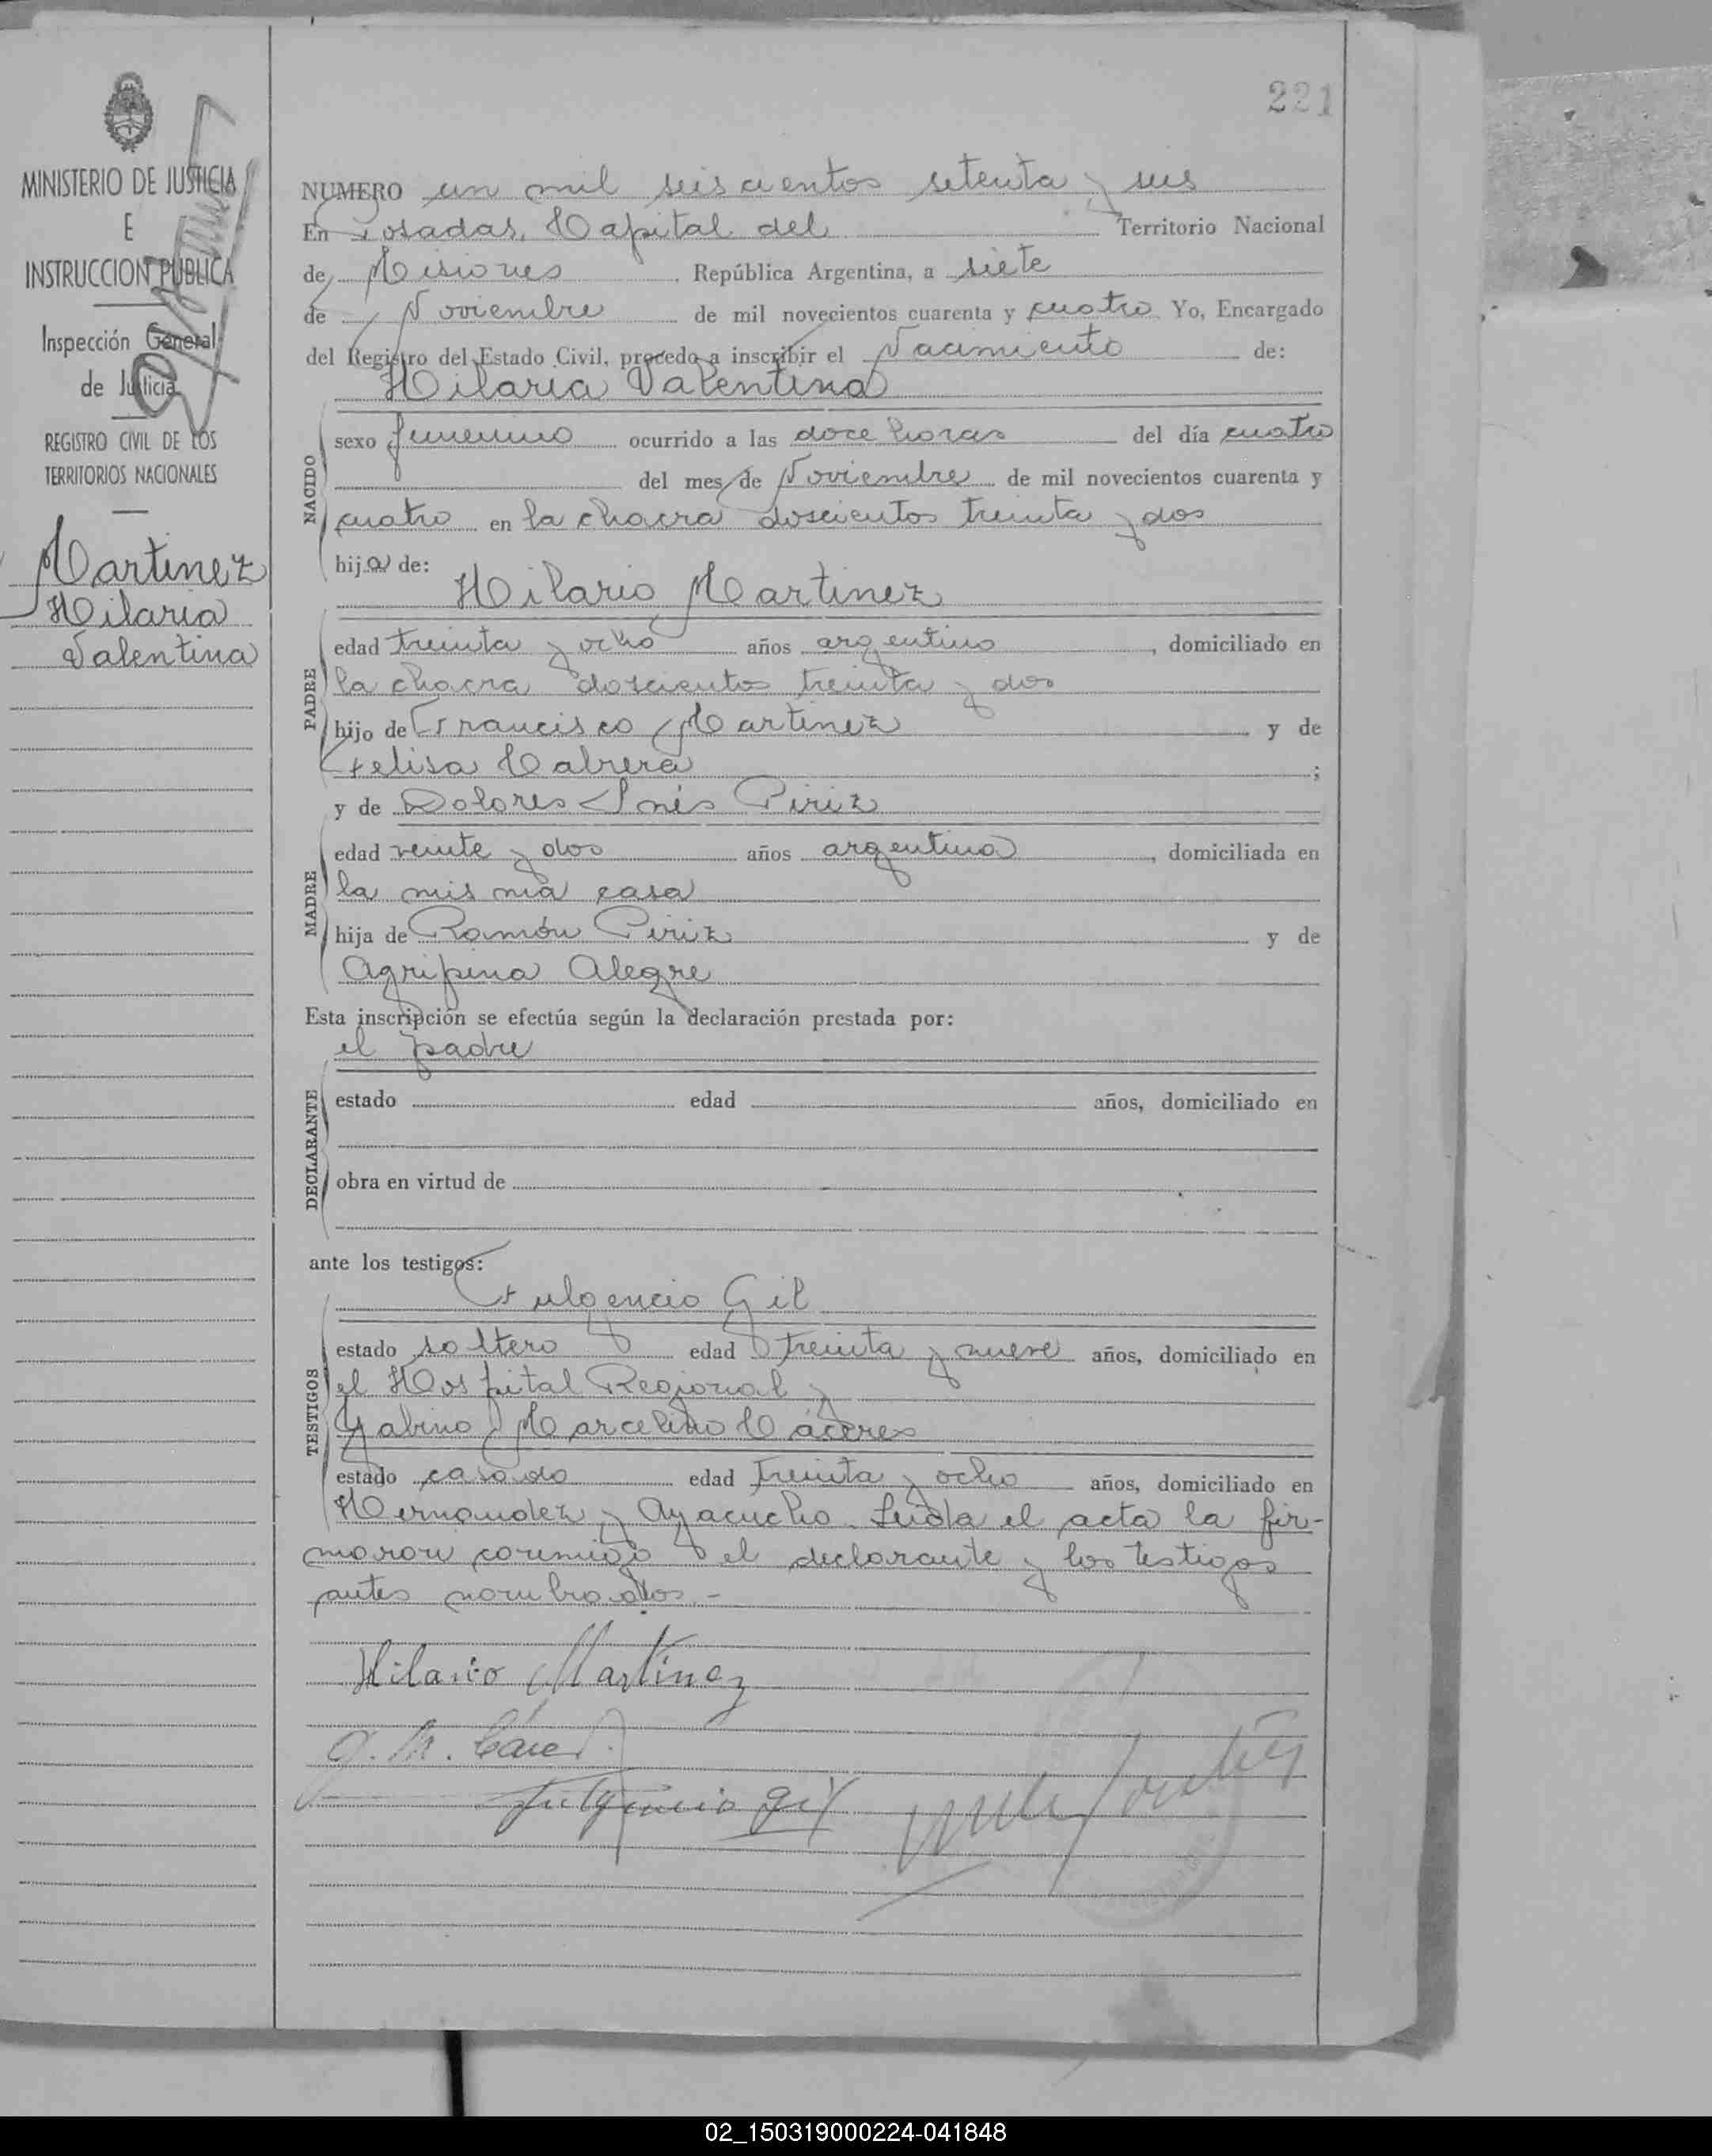 221
MINISTERIO DE JUSTICIA
E
INSTRUCCION PUBLICA
Inspección General
de Justicia
REGISTRO CIVIL DE LOS
TERRITORIOS NACIONALES
Martinez
Hilaria
Valentina
NUMERO un mil seiscientos setenta y seis
En Posadas, Capital del Territorio Nacional
de Misiones República Argentina, a siete
de Noviembre de mil novecientos cuarenta y cuatro Yo, Encargado
del Registro del Estado Civil, procedo a inscribir el Nacimiento de:
Hilaria Valentina
NACIDO
sexo femenino ocurrido a las doce horas del día cuatro
del mes de Noviembre de mil novecientos cuarenta y
cuatro en la chacra doscientos treinta y dos
hija de:
Hilario Martinez
PADRE
edad treinta y ocho años argentino, domiciliado en
la chacra doscientos treinta y dos
hijo de Francisco Martinez y de
Felisa Cabrera ;
y de Dolores Inés Piriz
MADRE
edad veinte y dos años argentina, domiciliada en
la misma casa
hija de Ramón Piriz y de
Agripina Alegre
Esta inscripción se efectúa según la declaración prestada por:
el padre
DECLARANTE
estado edad años, domiciliado en
obra en virtud de
ante los testigos:
Fulgencio Gil
TESTIGOS
estado soltero edad treinta y nueve años, domiciliado en
el Hospital Regional y
Gabino Marcelino Cáceres
estado casado edad treinta y ocho años, domiciliado en
Hernandez y Ayacucho. Leida el acta la fir-
maron conmigo el declarante y los testigos
antes nombrados.-
Hilario Martínez
G. M. Cáceres
Fulgencio Gil
02_150319000224-041848